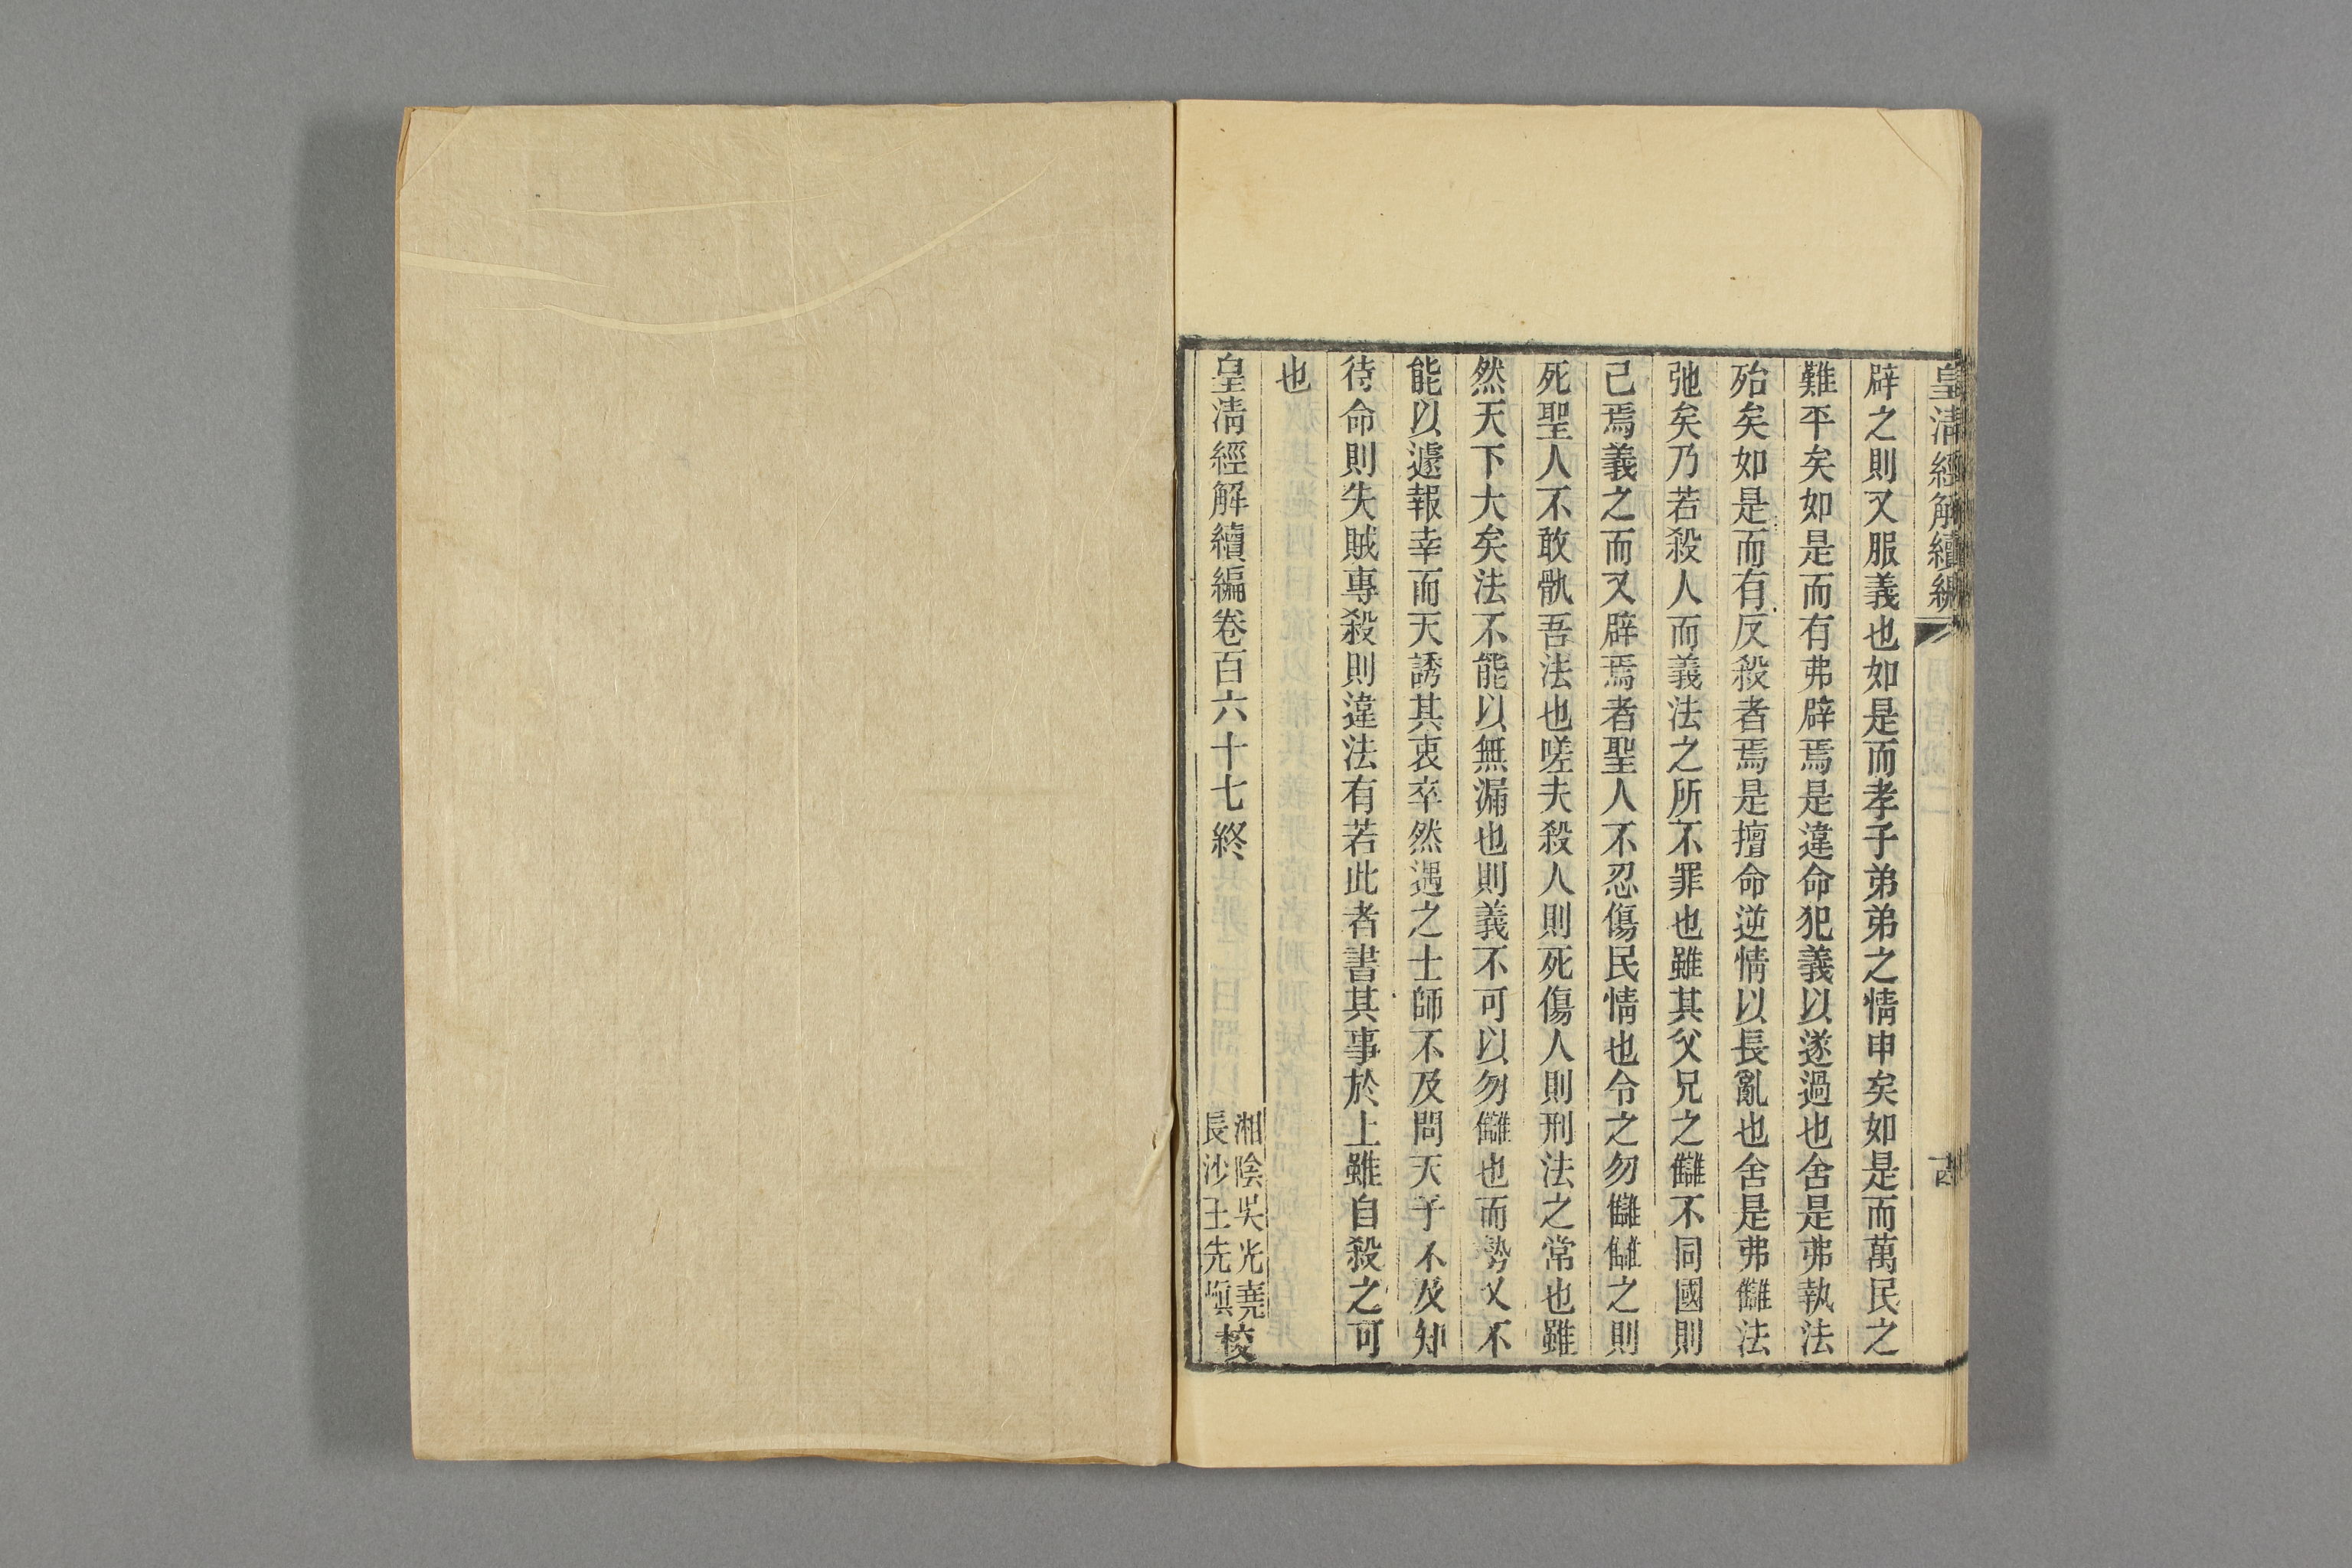 皇清經解續編
十四
辟之則又服義也如是而孝子弟弟之情申矣如是而萬民之
難平矣如是而有弗辟焉是違命犯義以遂過也舍是弗執法
殆矣如是而有反殺者焉是擅命逆情以長亂也舍是弗讎法
弛矣乃若殺人而義法之所不罪也雖其父兄之讎不同國則
己焉義之而又辟焉者聖人不忍傷民情也令之勿讎讎之則
死聖人不敢骫吾法也嗟夫殺人則死傷人則刑法之常也雖
然天下大矣法不能以無漏也則義不可以勿讎也而勢又不
能以遽報幸而天誘其衷卒然遇之士師不及問天子不及知
待命則失賊專殺則違法有若此者書其事於上雖自殺之可
也
皇清經解續編卷百六十七終
湘陰吳光堯
長沙王先塡
校